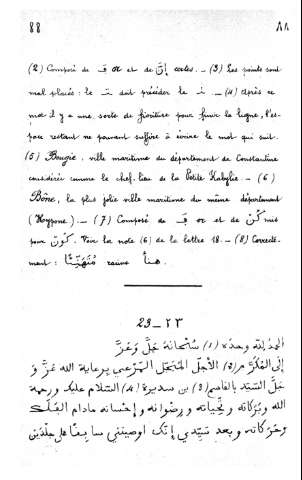 88 ٨٨
(2) Composé de ڢ or et de إنّ certes. — (3) Les points sont
mal placés: le ت doit précéder le ن — (4) Après ce
mot il y a une sorte de fioriture pour finir la ligne, l'es-
pace restant ne pouvant suffire à écrire le mot qui suit.
(5) Bougie, ville maritime du département de Constantine
considérée comme le chef-lieu de la Petite Kabylie — (6)
Bône, la plus jolie ville maritime du même département
(Hyppone). — (7) Composé de ڢ or et de كُنْ mis
pour كون. Voir la note (6) de la lettre 18. — (8) Correcte-
ment: مُتَهَنِّئًا racine هنأ.
23 — ٢٣
الحمد لله وحده (1) سُبْحَانَهُ جَلَّ وَعَزَّ
الأجلّ برعاية الله عَزَّ وَ
جَلَّ السيّد بن سديرة (4) السّلام عليك ورحمة
الله وبَرَكَاتُه وتحيّاته ورضوانه وإحسانه مادام الفَلَك
وحَرَكَاته وبعد سيّدي إنّك أوصيتني سابقًا على جلدين